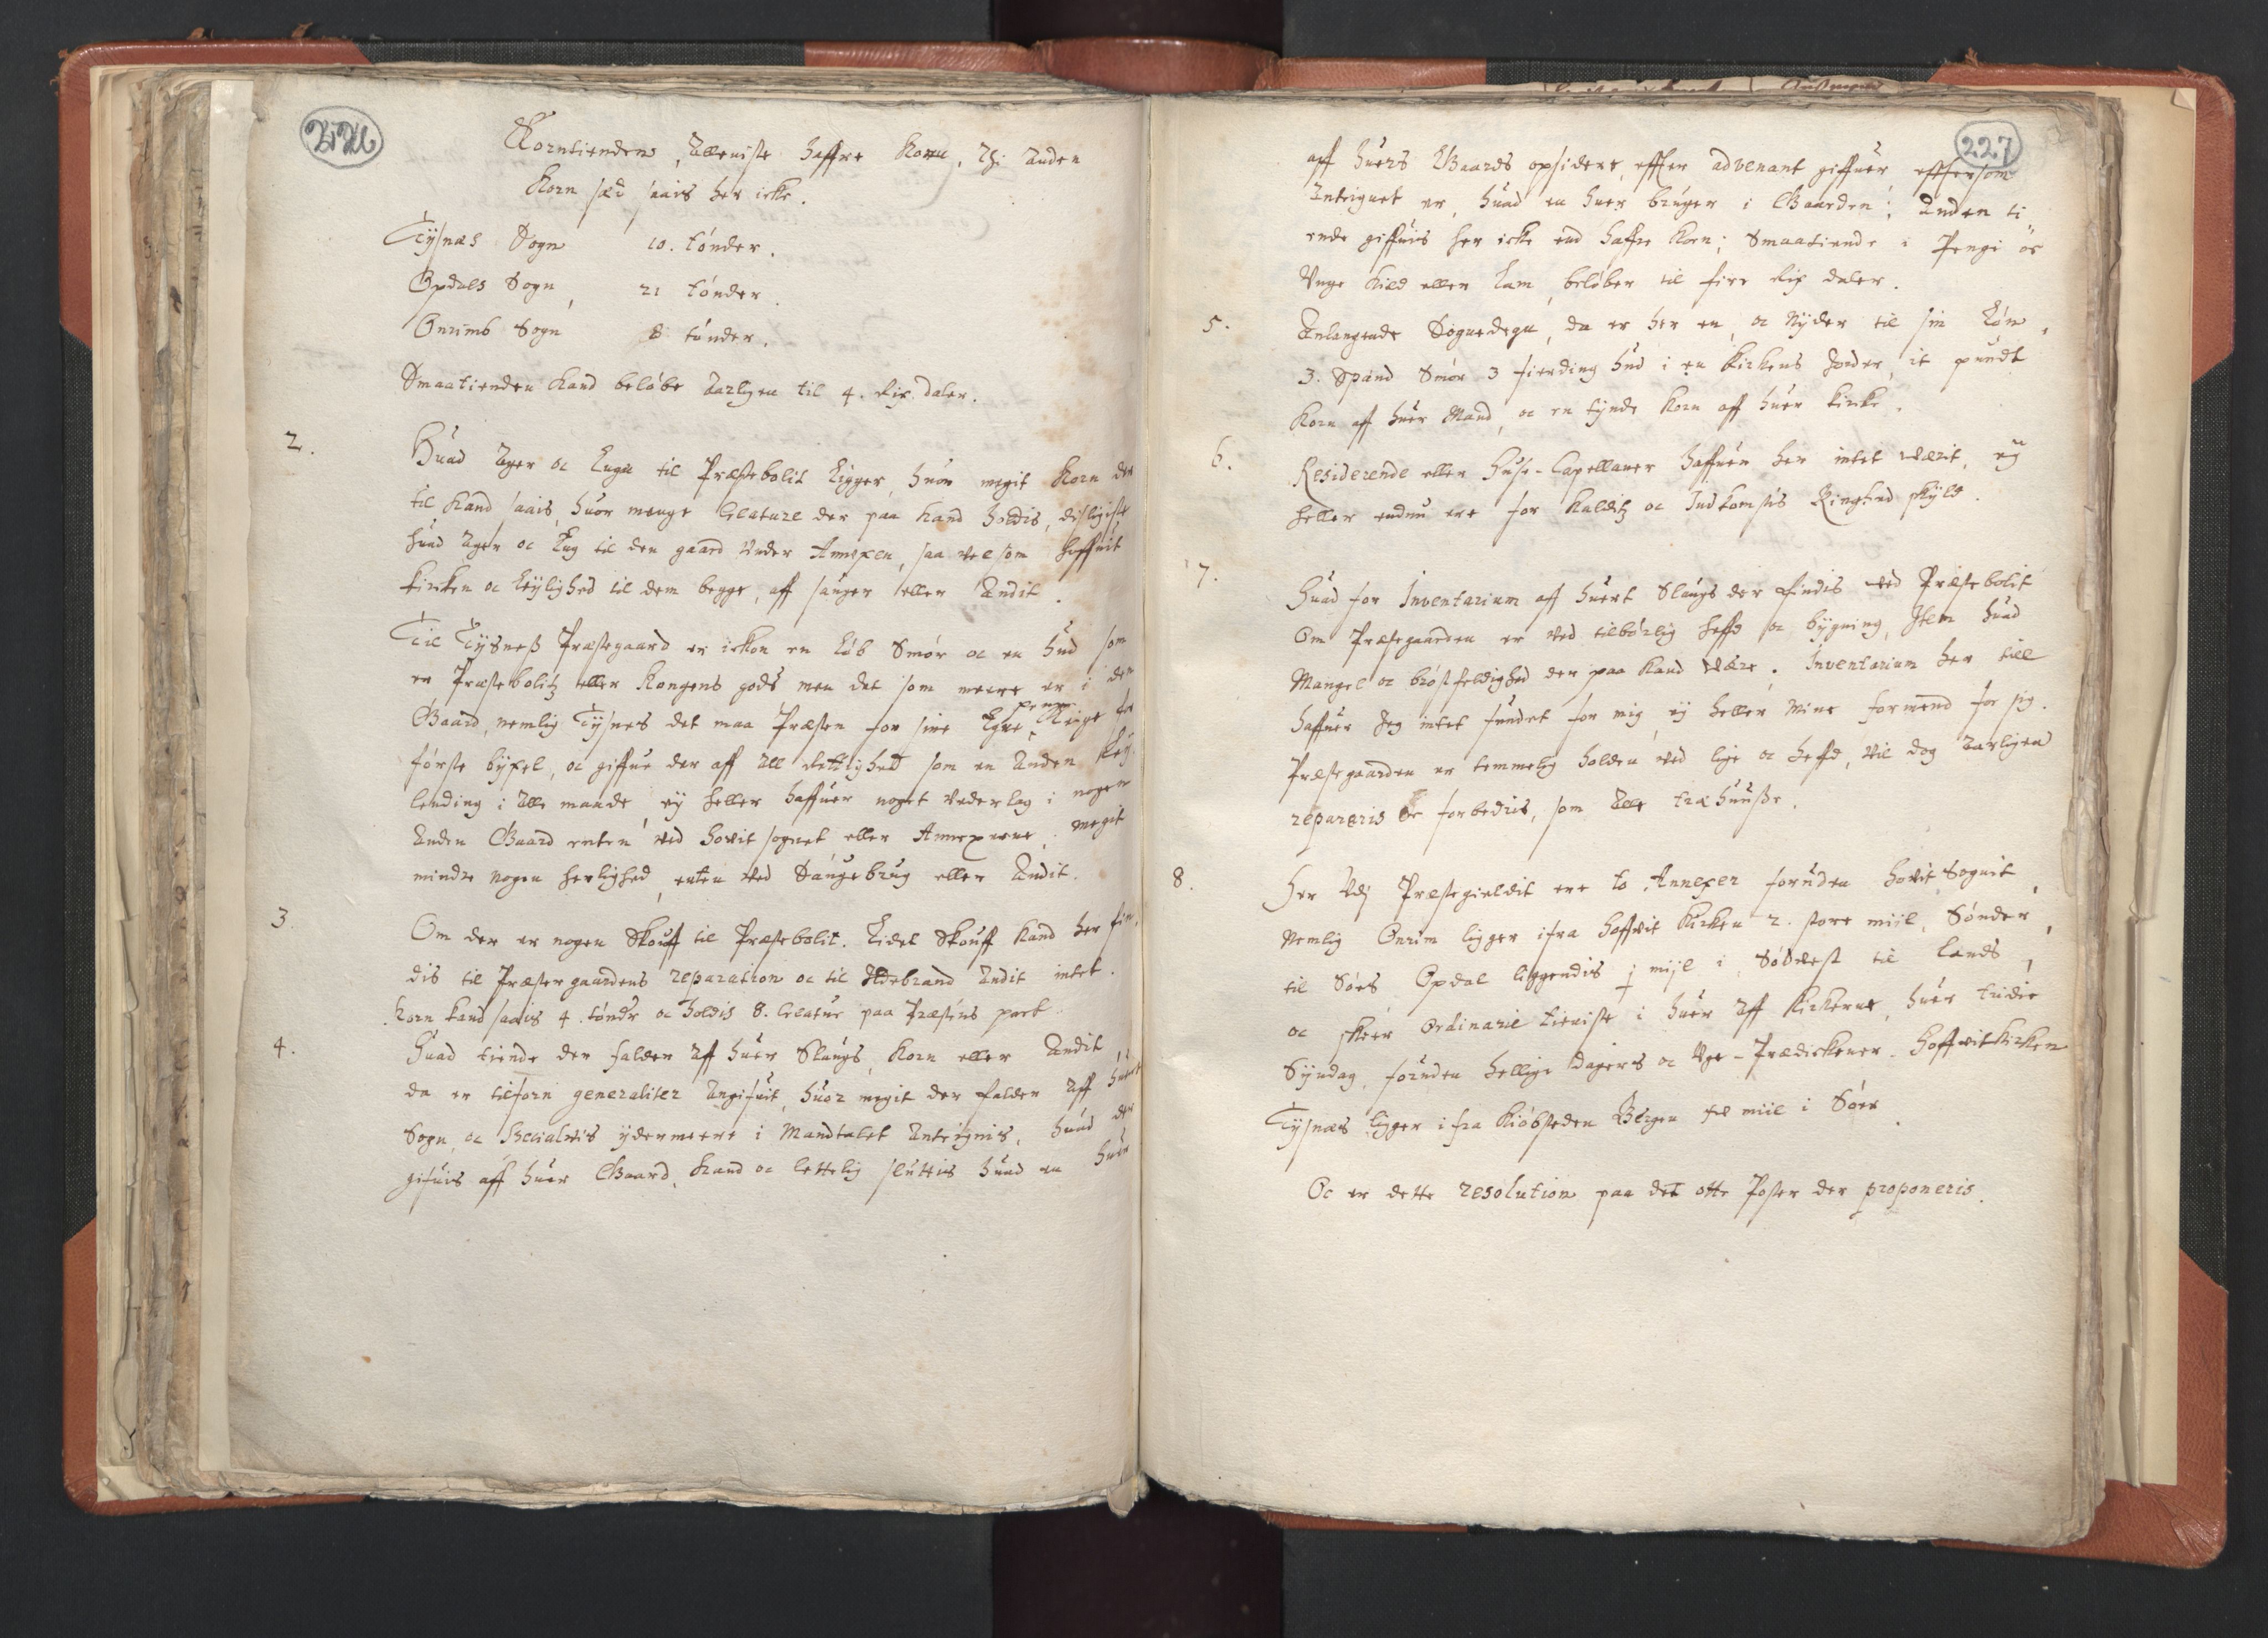 226
Korntienden, Alleniste haffre Korn, Thi Anden
Korn sæd saais her icke.
Tysnæs Sogn 10. tónder.
Opdals Sogn, 21 tónder.
Onrims Sogn 8 tónder.
Smaatienden kand belóbe Aarligen til 4. Rix daler.
2.
Huad Ager oc Engæ til Præstebolit ligger, huor megit Korn der
til kand saais, huor mange Creature der paa kand holdis, disligiste
huad Ager oc Eng til den gaard Under Annexen, saa vel som hoffuit
kircken oc leylighed til dem begge, aff sauger eller Andit.
Til Tysness Præstegaard er ickon en lób Smór oc en hud som
er Præstebolitz eller Kongens gods men det som meere er i den
Gaard, nemlig Tysnes det maa Præsten for sine Egne penger
fórste byxel, oc giffue der aff all Rettighed som en Anden ley-
lending i Alle maade, ey heller haffuer noget Vnderlag i nogen
Anden Gaard enten ved hovit sognet eller Annexerne, megit
mindre nogen herlighed, enten ved Saugebrug eller Andit.
3.
Om der er nogen Skouff til Præstebolit. Lidet Skouff kand her fin-
dis til Præstergaardens reparation oc til Ildebrand Andit intet.
Korn kand saais 4. tónder oc holdis 8. Creatur paa Præstens part.
4.
Huad tiende der falder Aff huer Slaugs, Korn eller Andit
da er tilforn generaliter Angifuit, huor megit der falder Aff huert
Sogn, oc Specialvis ydermeere i Mandtalet Anteignis, huad der
gifuis aff huer Gaard, kand oc lettelig sluttis huad en huer
227
aff huers Gaards opsidere, effter advenant giffuer, efftersom
Anteignet er, huad en huer bruger i Gaarden; Anden ti
ende giffuis her icke end haffre Korn; Smaatiende i Penge oc
Unge Kied eller lam, belóber til fire Rix daler.
5.
Anlangende Sognedegn, da er her en, oc Nyder til sin lón,
3. Spand Smór 3 fierding hud i en kirkens Jorder, it pundt
Korn aff huer Mand, oc en tynde Korn aff huer kircke.
6.
Residerende eller Huse-Capellaner haffuer her intet værit, ey
heller endnu ere for Kalditz oc Indkomsts Ringhed skyld.
7.
Huad for Inventarium aff huert Slaugs der findis ved Præstebolit
Om Præstegaarden er ved tilbórlig heffd oc bygning, Item huad
Mangel oc bróstfeldighed der paa kand være. Inventarium her till
haffuer Jeg intet fundet for mig, ey heller mine formend for sig.
Præstegaarden er temmelig holden ved lige oc heffd, vil dog Aarligen
repareris oc forbedris, som Alle træhuusse.
8.
Her Udj Præstegieldit ere to Annexer foruden hovit Sognit,
Nemlig Onrim ligger ifra hoffvit Kirken 2. store miil, Sónder,
til Sóes Opdal liggendis j miil i Sódvest til lands,
oc skeer Ordinarie tieniste i huer Aff Kirkerne, huer tridie
Syndag, foruden hellige dagers oc Uge-Prædickener. Hoffvitkirken
Tysnæs ligger ifra Kióbsteden Bergen miil i Sóer.
Oc er dette resolution paa det otte Poster der proponeris.